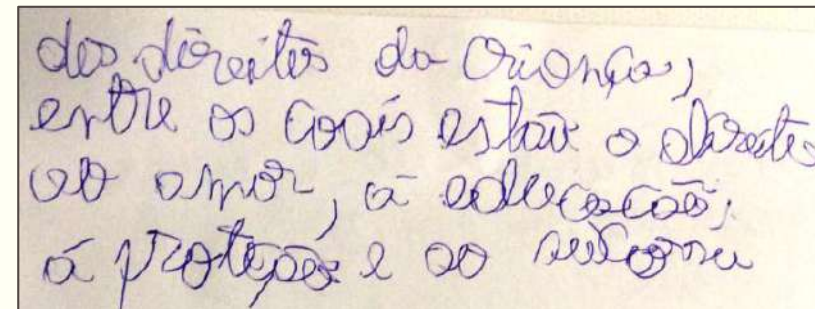 dos direitos da criança,
entre os coais estão o direito
ao amor, á educacão,
á proteção e ao